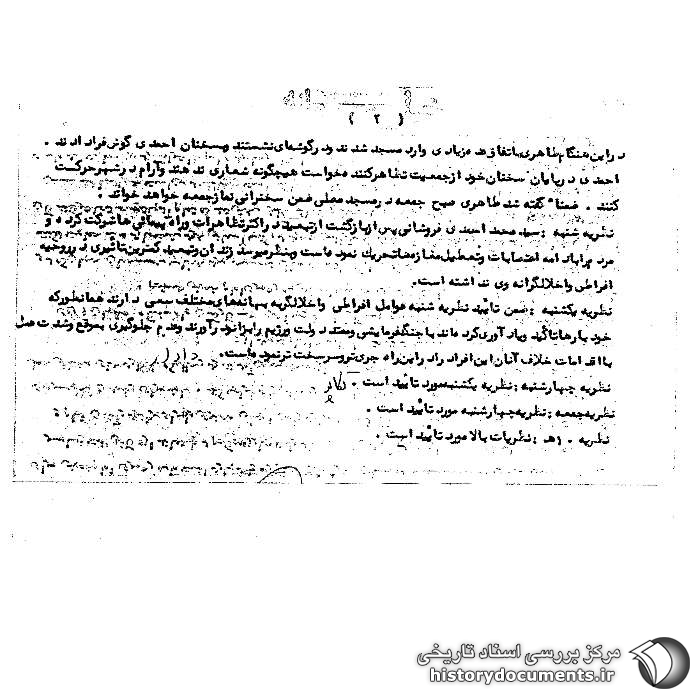 ( ۲ )
در این هنگام طاهری باتفاق عده زیادی وارد مسجد شدند و در گوشه‌ای نشستند و بسخنان احمدی گوش فرا دادند .
احمدی در پایان سخنان خود از جمعیت تظاهر کننده خواست هیچگونه شعاری ندهند و آرام در شهر حرکت
کنند . ضمنا" گفته شد طاهری صبح جمعه در مسجد مصلی ضمن سخنرانی نماز جمعه خواهد خواند .
نظریه شنبه : سید محمد احمدی فروشانی پس از بازگشت از تبعید در اکثر تظاهرات و راه پیمائی ها شرکت کرده و
مردم را بادامه اعتصابات و تعطیل مغازه‌ها تحریک نموده است و بنظر میرسد زندان و تبعید کمترین تاثیری در روحیه
افراطی و اخلالگرانه وی نداشته است.
نظریه یکشنبه : ضمن تایید نظریه شنبه عوامل افراطی و اخلالگر به بهانه‌های مختلف سعی دارند همانطور که
خود بارها تاکید و یادآوری کرده‌اند با جنگ فرمایشی و معتد دولت و رژیم را بزانو درآورند و عدم جلوگیری بموقع و شدت عمل
با اقدامات خلاف آنان این افراد را در این راه جری تر و سرسخت تر نموده است.
نظریه چهارشنبه : نظریه یکشنبه مورد تایید است .
نظریه جمعه : نظریه چهارشنبه مورد تایید است .
نظریه ۱۰ ه : نظریات بالا مورد تایید است .
مرکز بررسی اسناد تاریخی
historydocuments.ir